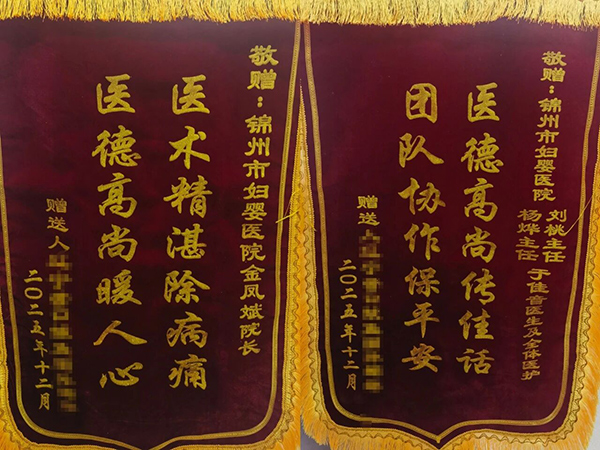 敬赠：锦州市妇婴医院金凤斌院长
医术精湛除病痛
医德高尚暖人心
赠送人
二〇二五年十二月
敬赠：锦州市妇婴医院
刘桃主任
杨烨主任
于佳音医生及全体医护
医德高尚传佳话
团队协作保平安
赠送
二〇二五年十二月